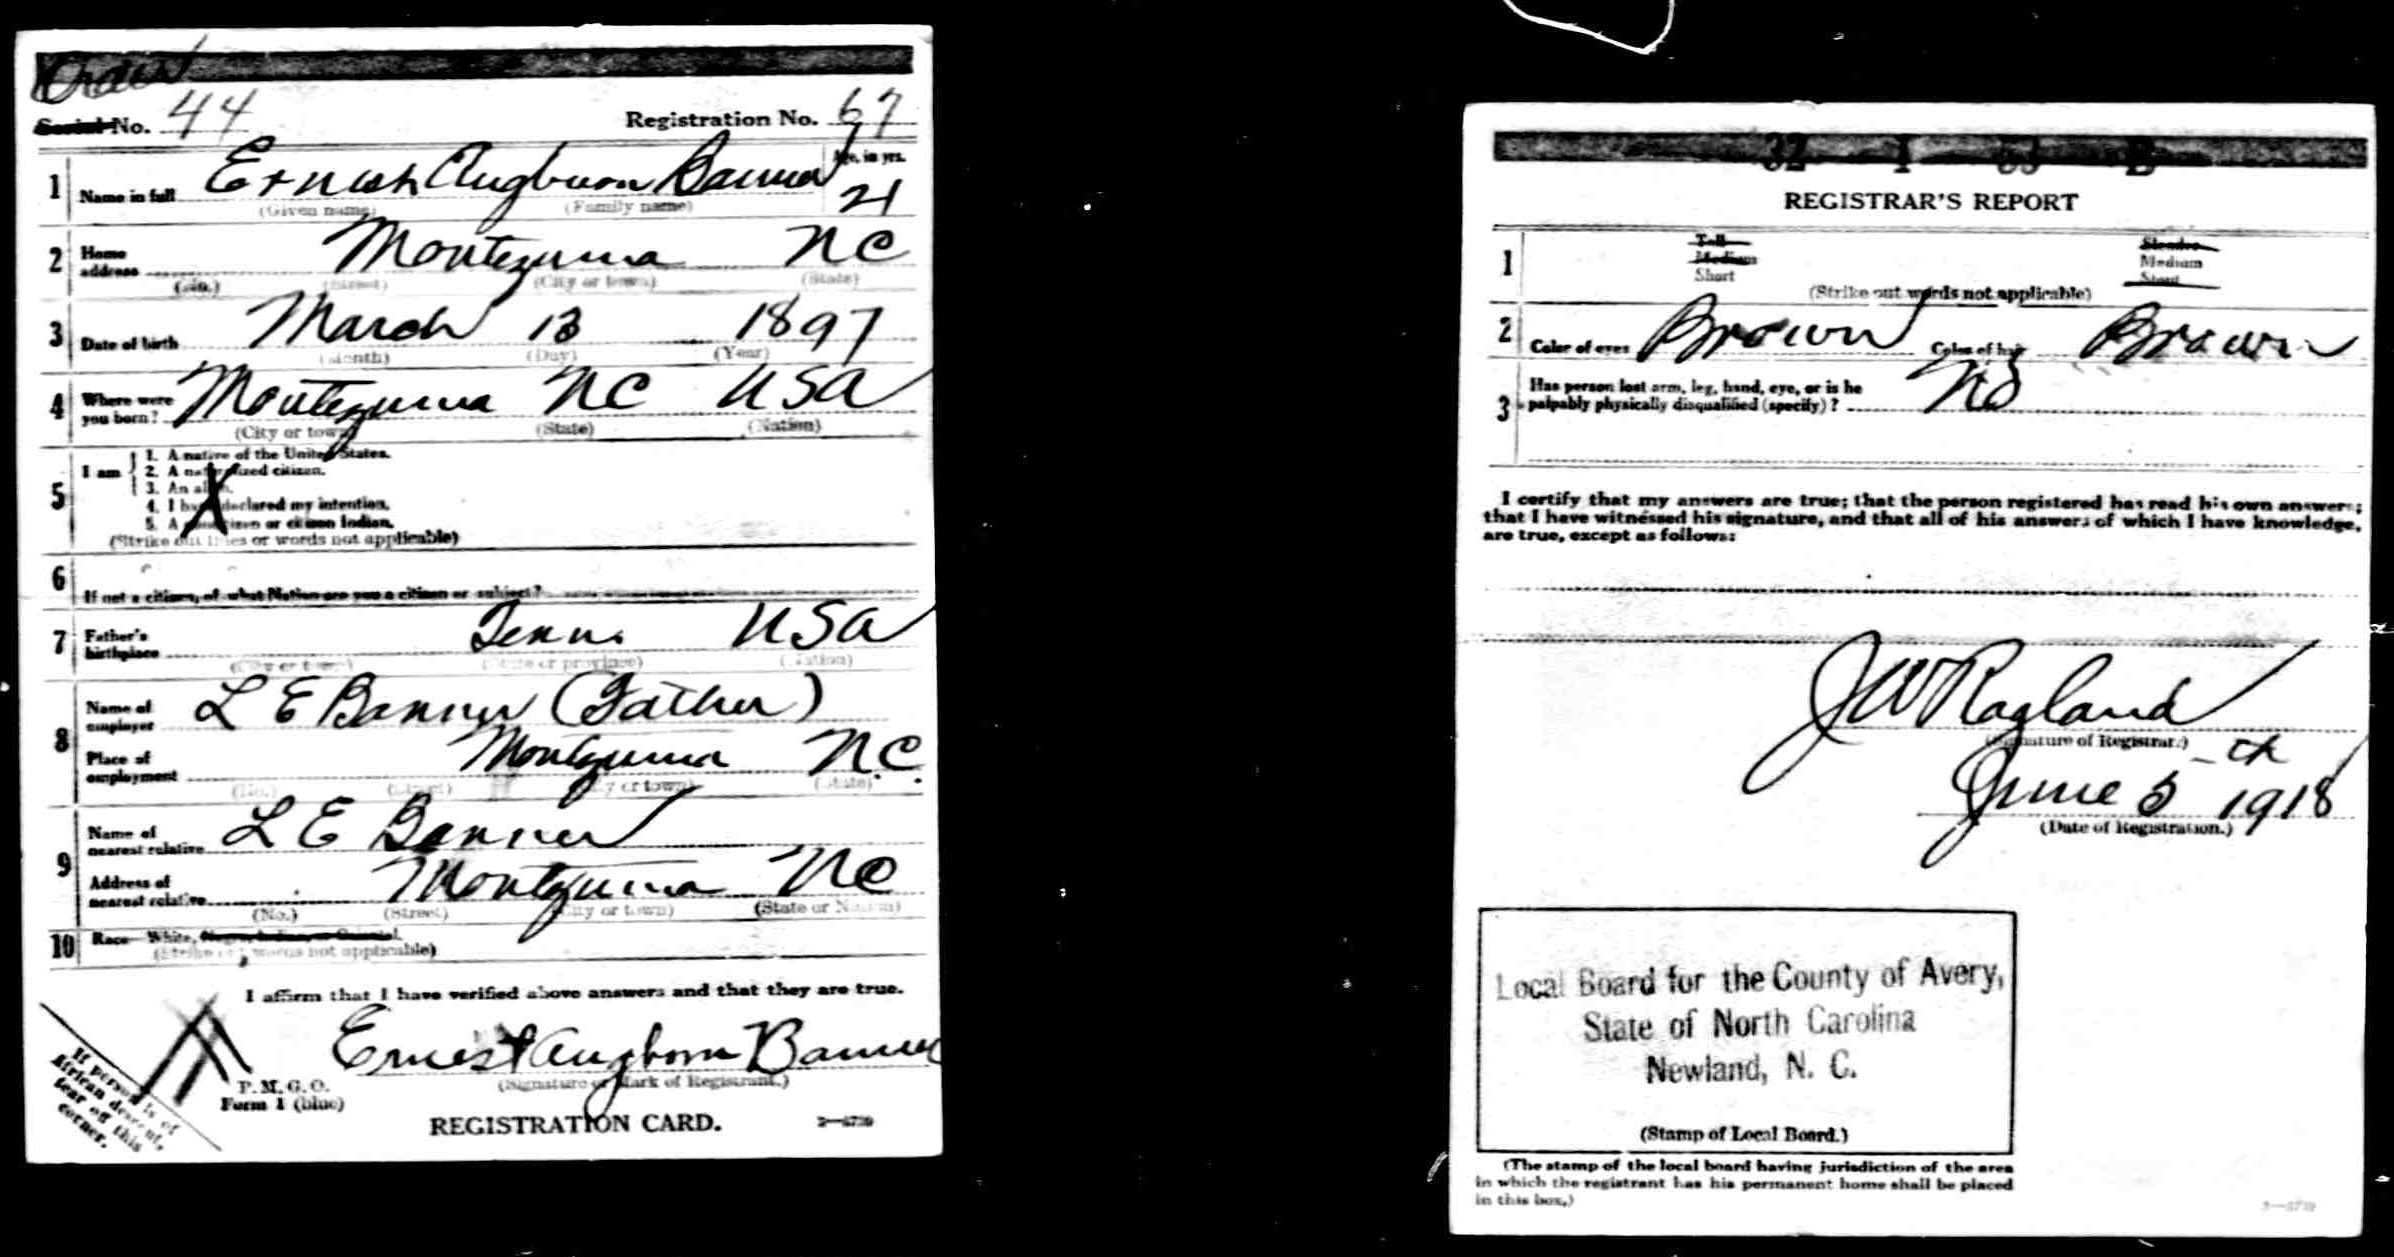 Order
Serial No. 44 Registration No. 67
1 Name in full Ernest Augburn Banner Age, in yrs. 21
(Given name) (Family name)
2 Home address Montezuma NC
(No.) (Street) (City or town) (State)
3 Date of birth March 13 1897
(Month) (Day) (Year)
4 Where were you born? Montezuma NC USA
(City or town) (State) (Nation)
5 I am
1. A native of the United States.
2. A naturalized citizen.
3. An alien.
4. I have declared my intention.
5. A noncitizen or citizen Indian.
(Strike out lines or words not applicable)
6 If not a citizen, of what Nation are you a citizen or subject?
7 Father's birthplace Tenn. USA
(City or town) (State or province) (Nation)
8 Name of employer L E Banner (Father)
Place of employment Montezuma N.C.
(No.) (Street) (City or town) (State)
9 Name of nearest relative L E Banner
Address of nearest relative Montezuma NC
(No.) (Street) (City or town) (State or Nation)
10 Race—White, Negro, Indian, or Oriental.
(Strike out words not applicable)
I affirm that I have verified above answers and that they are true.
Ernest Augborn Banner
(Signature or Mark of Registrant.)
P. M. G. O.
Form 1 (blue)
REGISTRATION CARD.
If person is of
African descent,
tear off this
corner.
REGISTRAR'S REPORT
1 Tall Slender
Medium Medium
Short Stout
(Strike out words not applicable)
2 Color of eyes Brown Color of hair Brown
3 Has person lost arm, leg, hand, eye, or is he
palpably physically disqualified (specify)? No
I certify that my answers are true; that the person registered has read his own answers;
that I have witnessed his signature, and that all of his answers of which I have knowledge,
are true, except as follows:
J W Ragland
(Signature of Registrar.)
June 5th 1918
(Date of Registration.)
Local Board for the County of Avery,
State of North Carolina
Newland, N. C.
(Stamp of Local Board.)
(The stamp of the local board having jurisdiction of the area
in which the registrant has his permanent home shall be placed
in this box.)